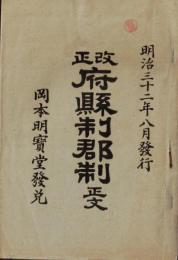 明治三十二年八月發行
改正
府縣制郡制正文
岡本明寶堂發兌